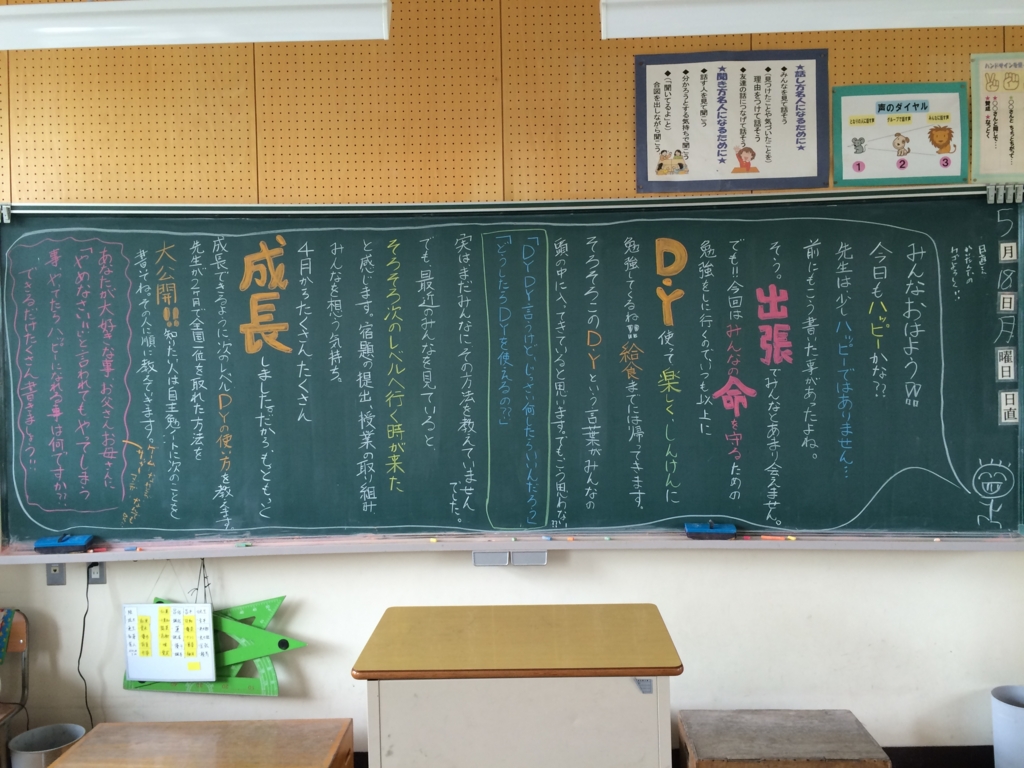 ★話し方名人になるために★
◆みんなを見て話そう
◆(見つけたことや気づいたことを)
理由をつけて話そう
◆友達の話につなげて話そう
★聞き方名人になるために★
◆話す人を見て聞こう
◆分かろうとする気持ちで聞こう
◆「聞いてるよ」と
合図を出しながら聞こう
声のダイヤル
1 2 3
ハンドサインを
5月8日月曜日
日直
みんなおはよう!!
今日もハッピーかな??
先生は少しハッピーではありません…
前にもこう書いた事があったよね。
そう。出張でみんなとあまり会えません。
でも!!今回はみんなの命を守るための
勉強をしに行くのでいつも以上に
D・Y使って楽しく、しんけんに
勉強してくるね!!給食までには帰ってきます。
そろそろこのD・Yという言葉がみんなの
頭の中に入ってきていると思います。でもこう思わない??
「DYDY言うけど、じっさい何したらいいんだろう」
「どうしたらDYを使えるの??」
実はまだみんなにその方法を教えていません
でした。
でも、最近のみんなを見ていると
そろそろ次のレベルへ行く時が来た
と感じます。宿題の提出、授業の取り組み
みんなを想う気持ち。
4月からたくさん、たくさん
成長しましただから、もっともっと
成長できるように次のレベルDYの使い方を教えます
先生が2ヶ月で全国一位を取れた方法を
大公開!!知りたい人は自主勉ノートに次のことを
書いてね。その人に順に教えていきます。
あなたが大好きな事、お父さんお母さんに
「やめなさい!!」と言われてもやってしまう
事、やってたらハッピーになれる事は何ですか??
できるだけたくさん書きましょう!!